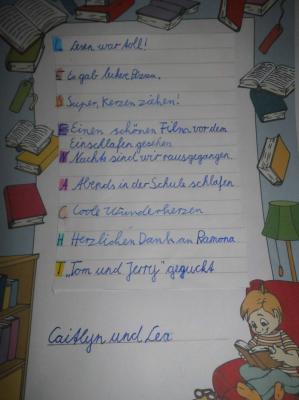 L Lesen war toll!
E Es gab lecker Pizza.
S Super, Kerzen ziehen!
E Einen schönen Film vor dem
Einschlafen gesehen
N Nachts sind wir rausgegangen.
A Abends in der Schule schlafen
C Coole Wunderkerzen
H Herzlichen Dank an Ramona
T „Tom und Jerry" geguckt
Caitlyn und Lea